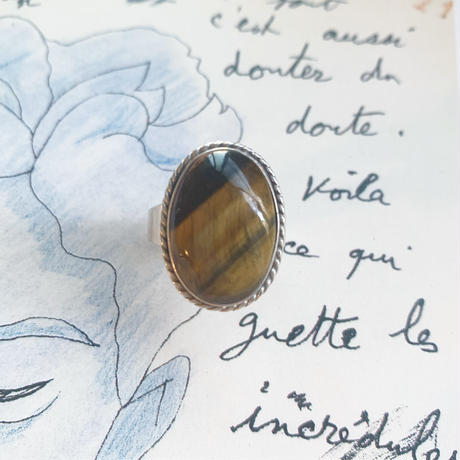 c'est aussi
douter du
doute.
Voila
ce qui
guette les
incrédules